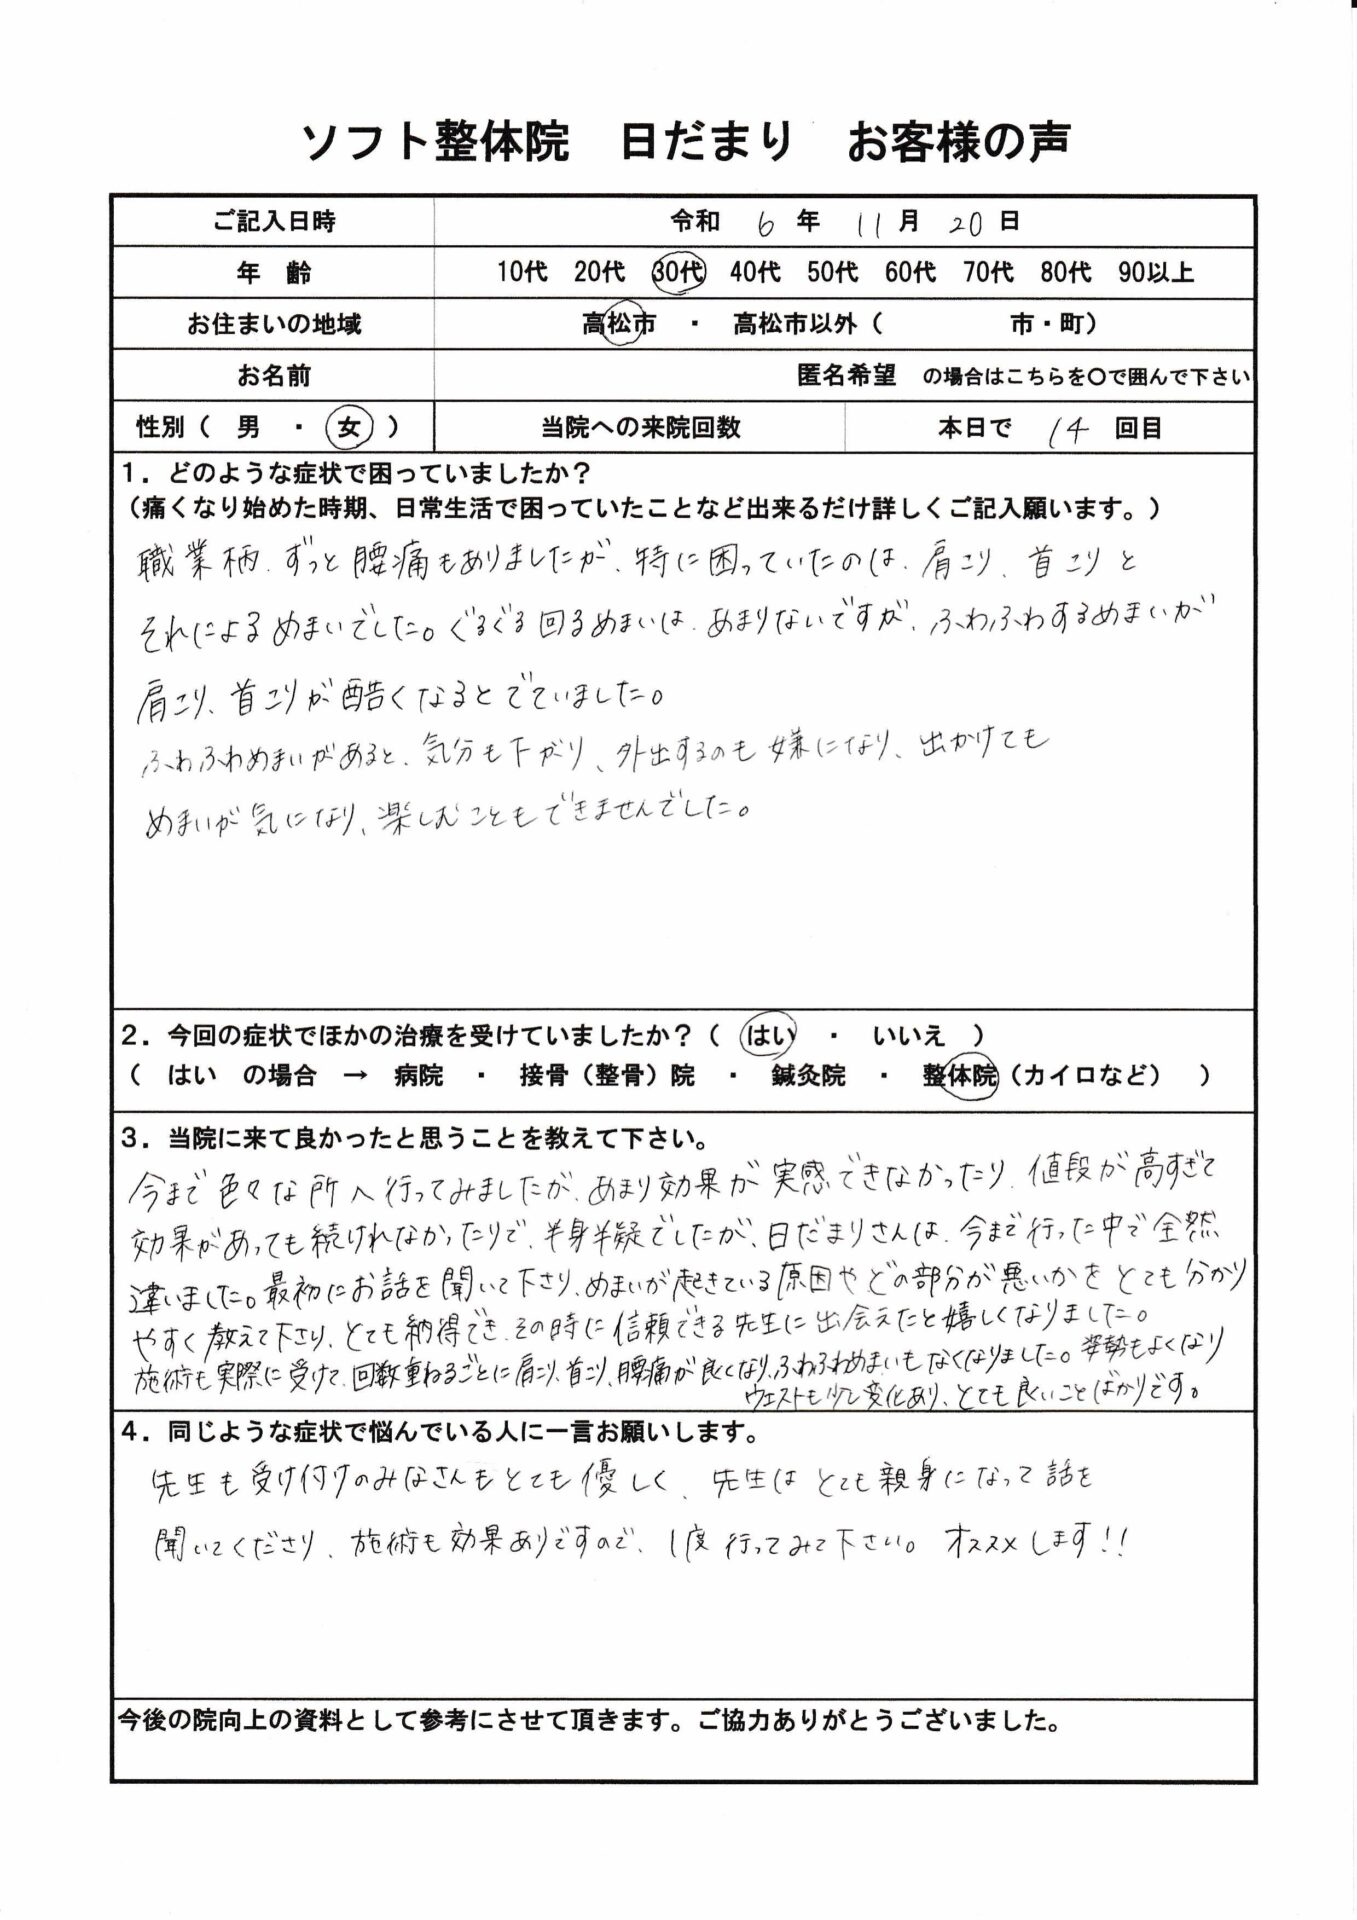 ソフト整体院　日だまり　お客様の声
ご記入日時　令和　6　年　11　月　20　日
年　齢　10代　20代　30代　40代　50代　60代　70代　80代　90以上
お住まいの地域　高松市　・　高松市以外（　　　　　市・町）
お名前　匿名希望　の場合はこちらを〇で囲んで下さい
性別（　男　・　女　）　当院への来院回数　本日で　14　回目
１．どのような症状で困っていましたか？
（痛くなり始めた時期、日常生活で困っていたことなど出来るだけ詳しくご記入願います。）
職業柄、ずっと腰痛もありましたが、特に困っていたのは、肩こり、首こりと
それによるめまいでした。ぐるぐる回るめまいは、あまりないですが、ふわふわするめまいが
肩こり、首こりが酷くなるとでていました。
ふわふわめまいがあると、気分も下がり、外出するのも嫌になり、出かけても
めまいが気になり、楽しむこともできませんでした。
２．今回の症状でほかの治療を受けていましたか？（　はい　・　いいえ　）
（　はい　の場合　→　病院　・　接骨（整骨）院　・　鍼灸院　・　整体院（カイロなど）　）
３．当院に来て良かったと思うことを教えて下さい。
今まで色々な所へ行ってみましたが、あまり効果が実感できなかったり、値段が高すぎて
効果があっても続けれなかったりで、半身半疑でしたが、日だまりさんは、今まで行った中で全然
違いました。最初にお話を聞いて下さり、めまいが起きている原因やどの部分が悪いかをとても分かり
やすく教えて下さり、とても納得でき、その時に信頼できる先生に出会えたと嬉しくなりました。
施術も実際に受けて、回数重ねるごとに肩こり、首こり、腰痛が良くなり、ふわふわめまいもなくなりました。姿勢もよくなり
ウエストも少し変化あり、とても良いことばかりです。
４．同じような症状で悩んでいる人に一言お願いします。
先生も受け付けのみなさんもとても優しく、先生はとても親身になって話を
聞いてくださり、施術も効果ありですので、1度行ってみて下さい。オススメします!!
今後の院向上の資料として参考にさせて頂きます。ご協力ありがとうございました。